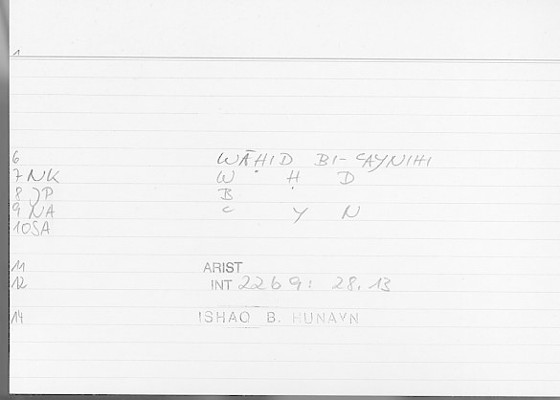 1
6 WĀḤID BI-ʿAYNIHI
7 NK W Ḥ D
8 JP B
9 NA ʿ Y N
10 SA
11 ARIST
12 INT 22b9: 28.13
14 ISHAQ B. HUNAYN